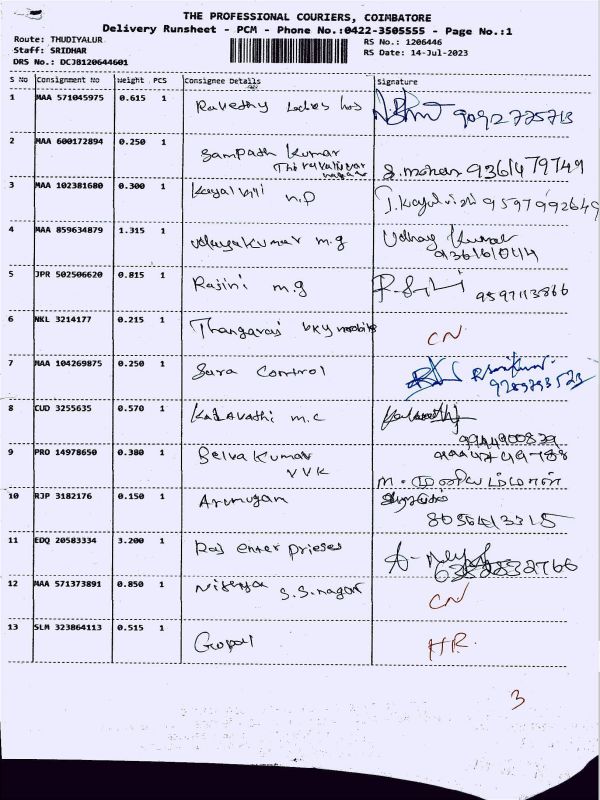 THE PROFESSIONAL COURIERS, COIMBATORE
Delivery Runsheet - PCM - Phone No.:0422-3505555 - Page No.:1
Route: THUDIYALUR
Staff: SRIDHAR
DRS No.: DCJB120644601
RS No.: 1206446
RS Date: 14-Jul-2023
S No Consignment No Weight PCS Consignee Details Signature
1 MAA 571045975 0.615 1 9092725713
2 MAA 600172894 0.250 1 Sampath Kumar
Thiruvalluvar nagar S.mohan 9361479749
3 MAA 102381680 0.300 1 n.p 9597992649
4 MAA 859634879 1.315 1 Udayakumar m.g Udhay Kumar
5 JPR 502506620 0.815 1 Rajini m.g 9597113866
6 NKL 3214177 0.215 1 Thangaraj vky mobile CN
7 MAA 104269875 0.250 1 Sara Control
8 CUD 3255635 0.570 1 Kalavathi m.c
9944900839
9 PRO 14978650 0.380 1 Selva Kumar
VVK
10 RJP 3182176 0.150 1 Arumugam
11 EDQ 20583334 3.200 1 Raj enter prieses
12 MAA 571373891 0.850 1 S.S.nagar CN
13 SLM 323864113 0.515 1 Gopal HR.
3